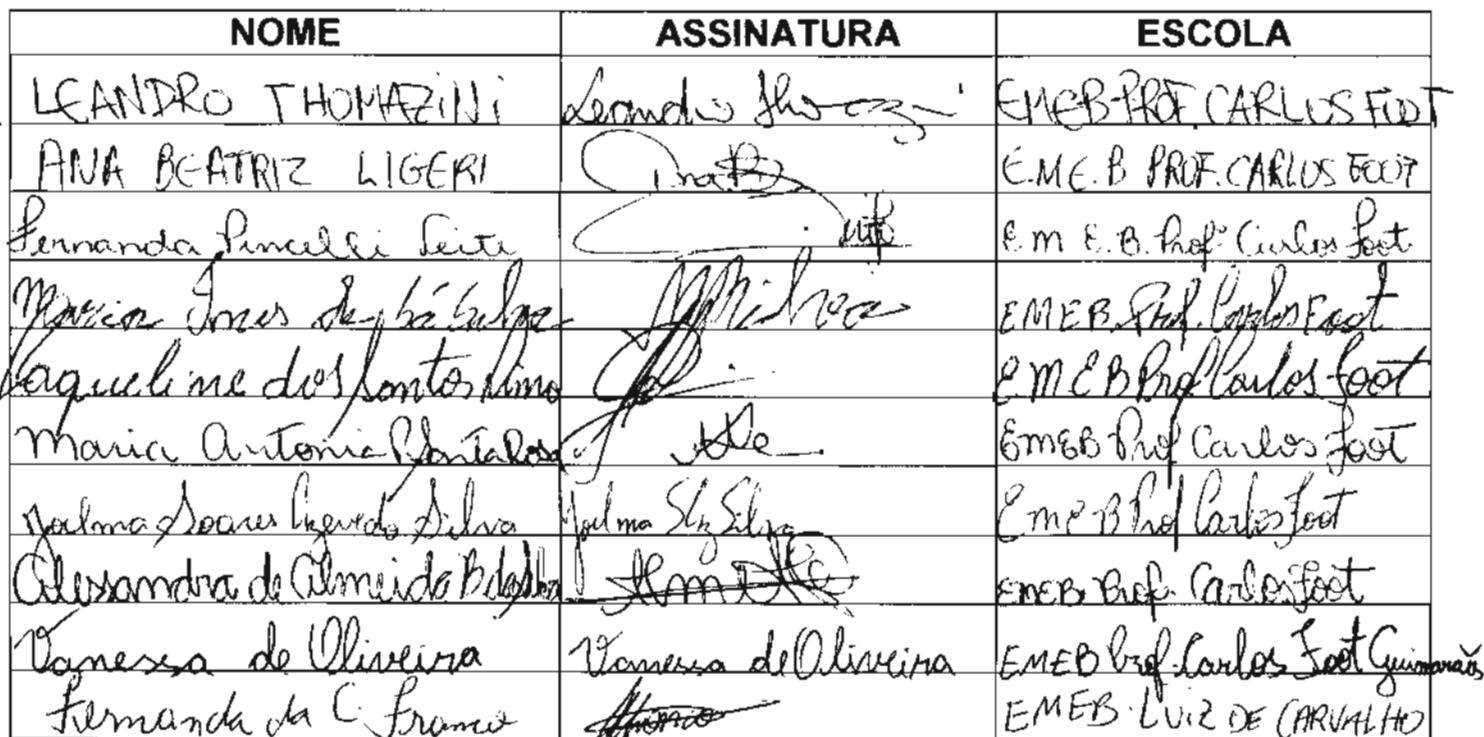 NOME ASSINATURA ESCOLA
LEANDRO THOMAZINI Leandro EMEB PROF. CARLOS FOOT
ANA BEATRIZ LIGERI Ana B E.M.E.B PROF. CARLOS FOOT
Fernanda Pincelli Leite E.M.E.B. Profº Carlos Foot
Maria Ines de Sá EMEB. Prof. Carlos Foot
Jaqueline dos Santos Lima EMEB Prof Carlos Foot
Maria Antonia P Santa Rosa EMEB Prof Carlos Foot
Joelma Soares Azevedo Silva Joelma Silva EMEB Prof Carlos Foot
Alessandra de Almeida B da Silva EMEB Prof. Carlos Foot
Vanessa de Oliveira Vanessa de Oliveira EMEB Prof. Carlos Foot Guimarães
Fernanda da C. Franco EMEB. LUIZ DE CARVALHO